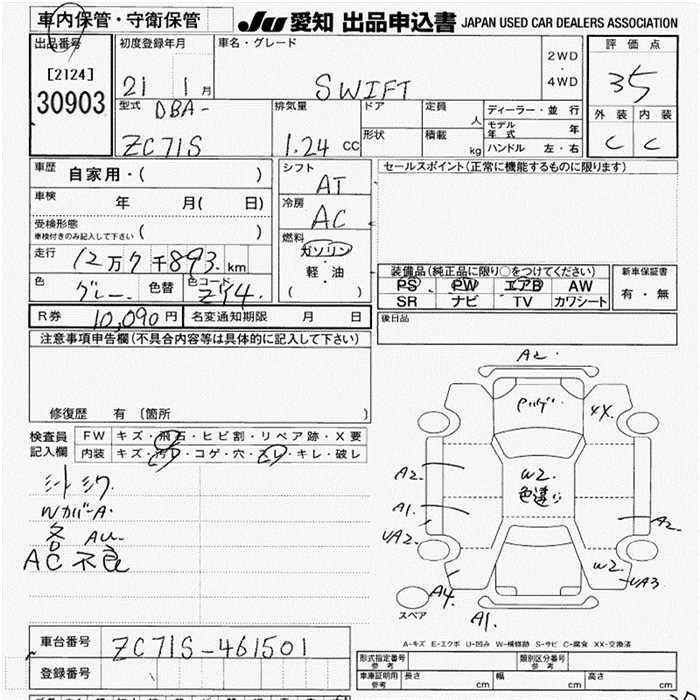 車内保管・守衛保管
JU 愛知 出品申込書 JAPAN USED CAR DEALERS ASSOCIATION
出品番号
[2124]
30903
初度登録年月
21 1月
車名・グレード
SWIFT
2WD
・
4WD
評価点
35
外装 内装
C C
型式 DBA-
ZC71S
排気量
1.24 CC
ドア
形状
定員
人
積載
kg
ディーラー・並行
モデル年式 年
ハンドル 左・右
車歴 自家用・( )
車検 年 月( 日)
受検形態
車検付きのみ記入して下さい ( )
走行 12万7千893 km
色 グレー 色替 色コード ZY4
シフト
AT
冷房
AC
燃料
ガソリン
・
軽・油
( )
セールスポイント(正常に機能するものに限ります)
装備品(純正品に限り○をつけてください)
PS PW エアB AW
SR ナビ TV カワシート
新車保証書
有・無
R券 10,090円 名変通知期限 月 日
後日品
注意事項申告欄(不具合内容等は具体的に記入して下さい)
修復歴 有 (箇所 )
検査員
記入欄
FW キズ・飛石・ヒビ割・リペア跡・X要
内装 キズ・汚レ・コゲ・穴・スレ・キレ・破レ
シートシワ
WカバーA
各 AU
AC不良
A2
4X
A2
A1
UA2
W2
色違い
A2
W2
UA3
A4
A1
スペア
A-キズ E-エクボ U-凹み W-補修跡 S-サビ C-腐食 XX-交換済
車台番号 ZC71S-461501
登録番号
形式指定番号
参考
類別区分番号
参考
車庫証明用
参考
長さ cm 幅 cm 高さ cm